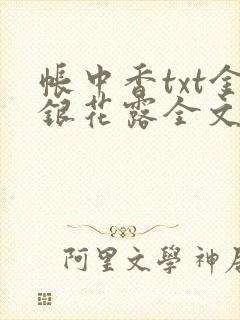 帳中香txt金
銀花露全文
阿里文學神居